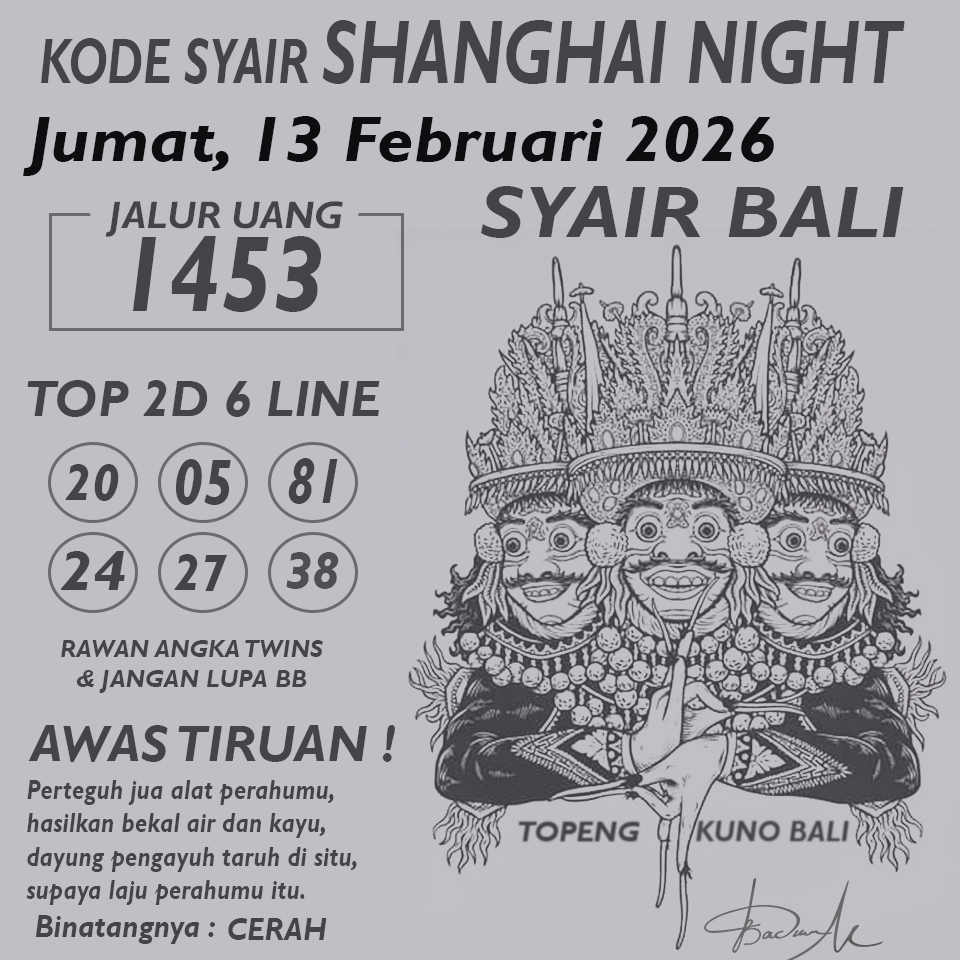 KODE SYAIR SHANGHAI NIGHT
Jumat, 13 Februari 2026
SYAIR BALI
JALUR UANG
1453
TOP 2D 6 LINE
20 05 81
24 27 38
RAWAN ANGKA TWINS
& JANGAN LUPA BB
AWAS TIRUAN !
Perteguh jua alat perahumu,
hasilkan bekal air dan kayu,
dayung pengayuh taruh di situ,
supaya laju perahumu itu.
Binatangnya : CERAH
TOPENG KUNO BALI